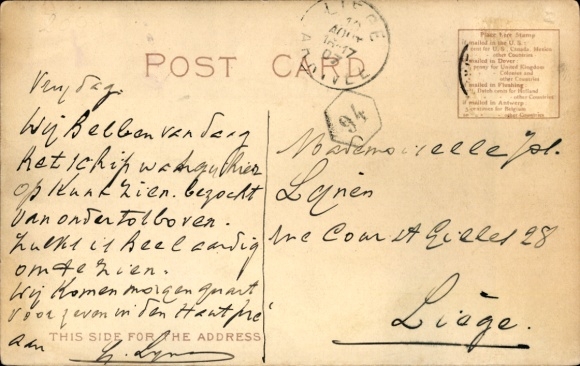 LIEGE
10
AOUT
16-17
ARRIVEE
POST CARD
Place Here Stamp
If mailed in the U. S.
cent for U. S., Canada, Mexico
other Countries
If mailed in Dover
penny for United Kingdom
Colonies and
other Countries
If mailed in Flushing
Dutch cents for Holland
other Countries
If mailed in Antwerp
centimes for Belgium
other Countries
94
Vrijdag
Wij hebben vandaag
het schip waar gij hier
op kunt zien. bezocht
van onder tot boven.
Zulks is heel aardig
om te zien.
Wij komen morgen quart
voor zeven in den Haut pré
aan
Mademoiselle Jos.
Lynen
rue Cour St Gilles 28
Liège.
THIS SIDE FOR THE ADDRESS